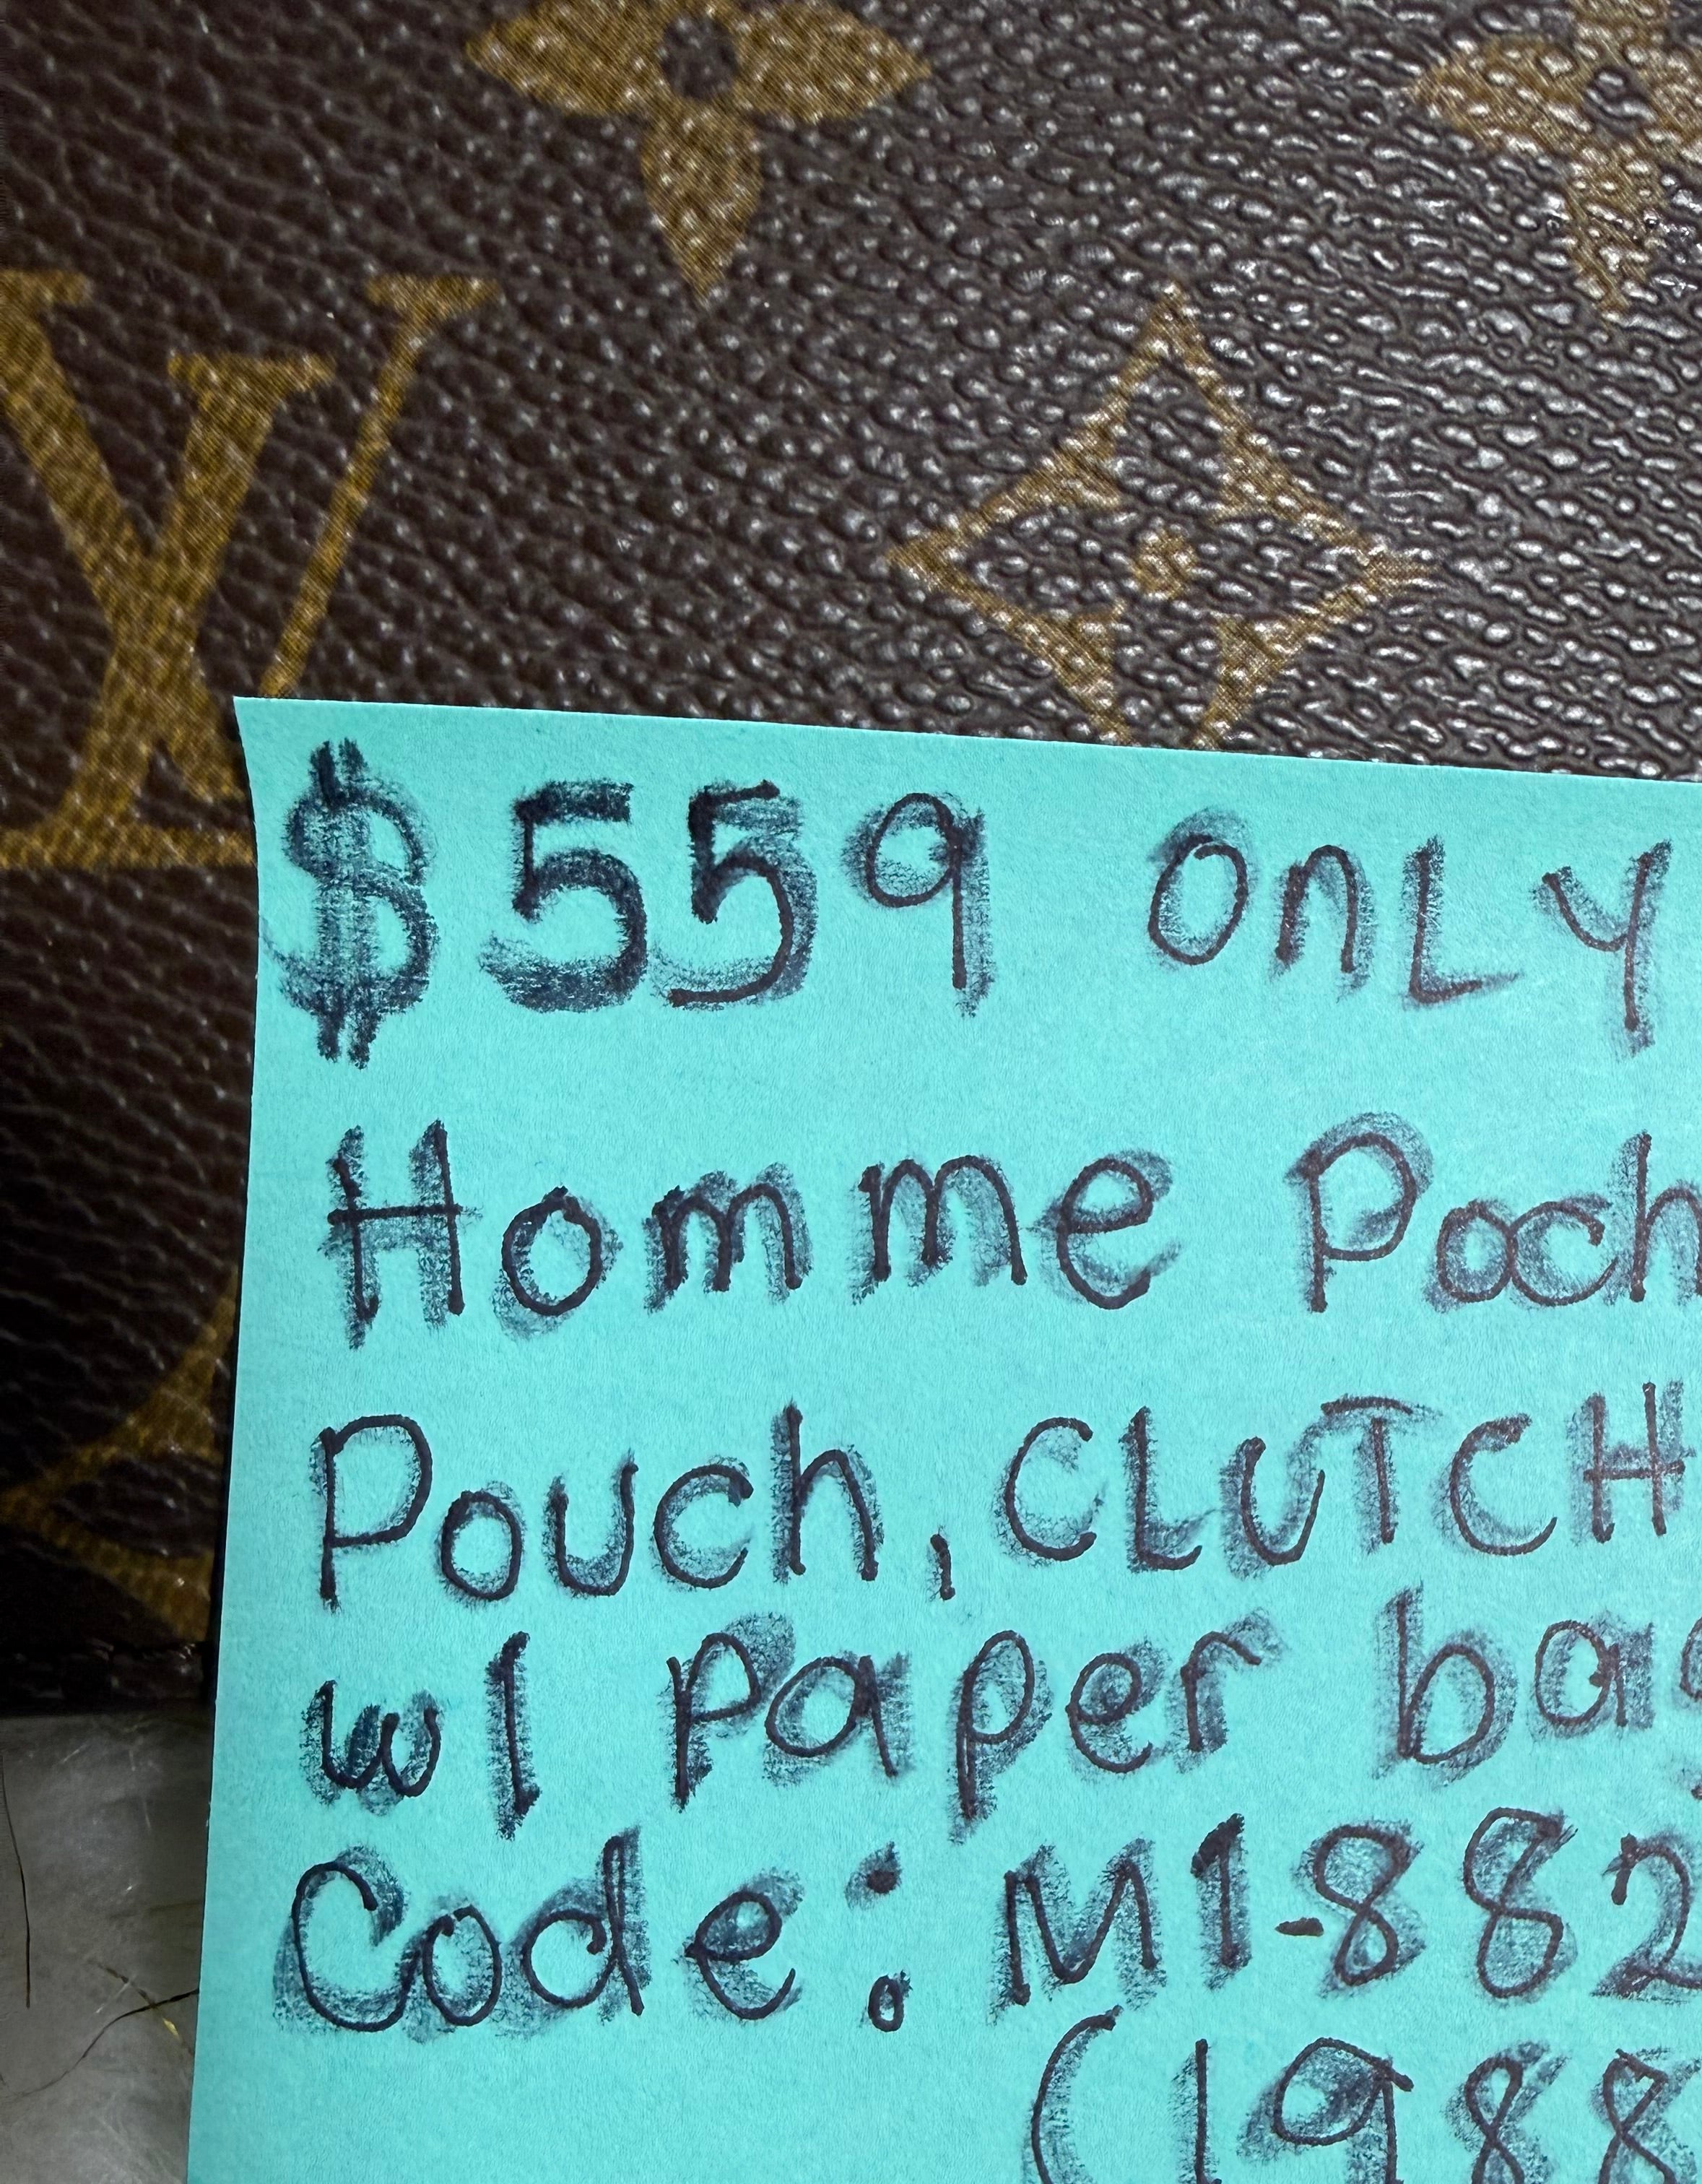 $559 ONLY
Homme Poch
Pouch, CLUTCH
w/ Paper bag
Code: M1-882
(1988